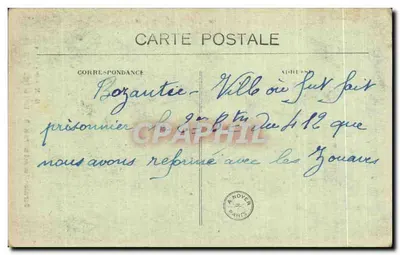 CARTE POSTALE
CORRESPONDANCE ADRESSE
Bozantie - Ville où fut fait
prisonnier le 2e Btn du 412 que
nous avons reformé avec les Zouaves
CPAPHIL
A. NOYER
PARIS